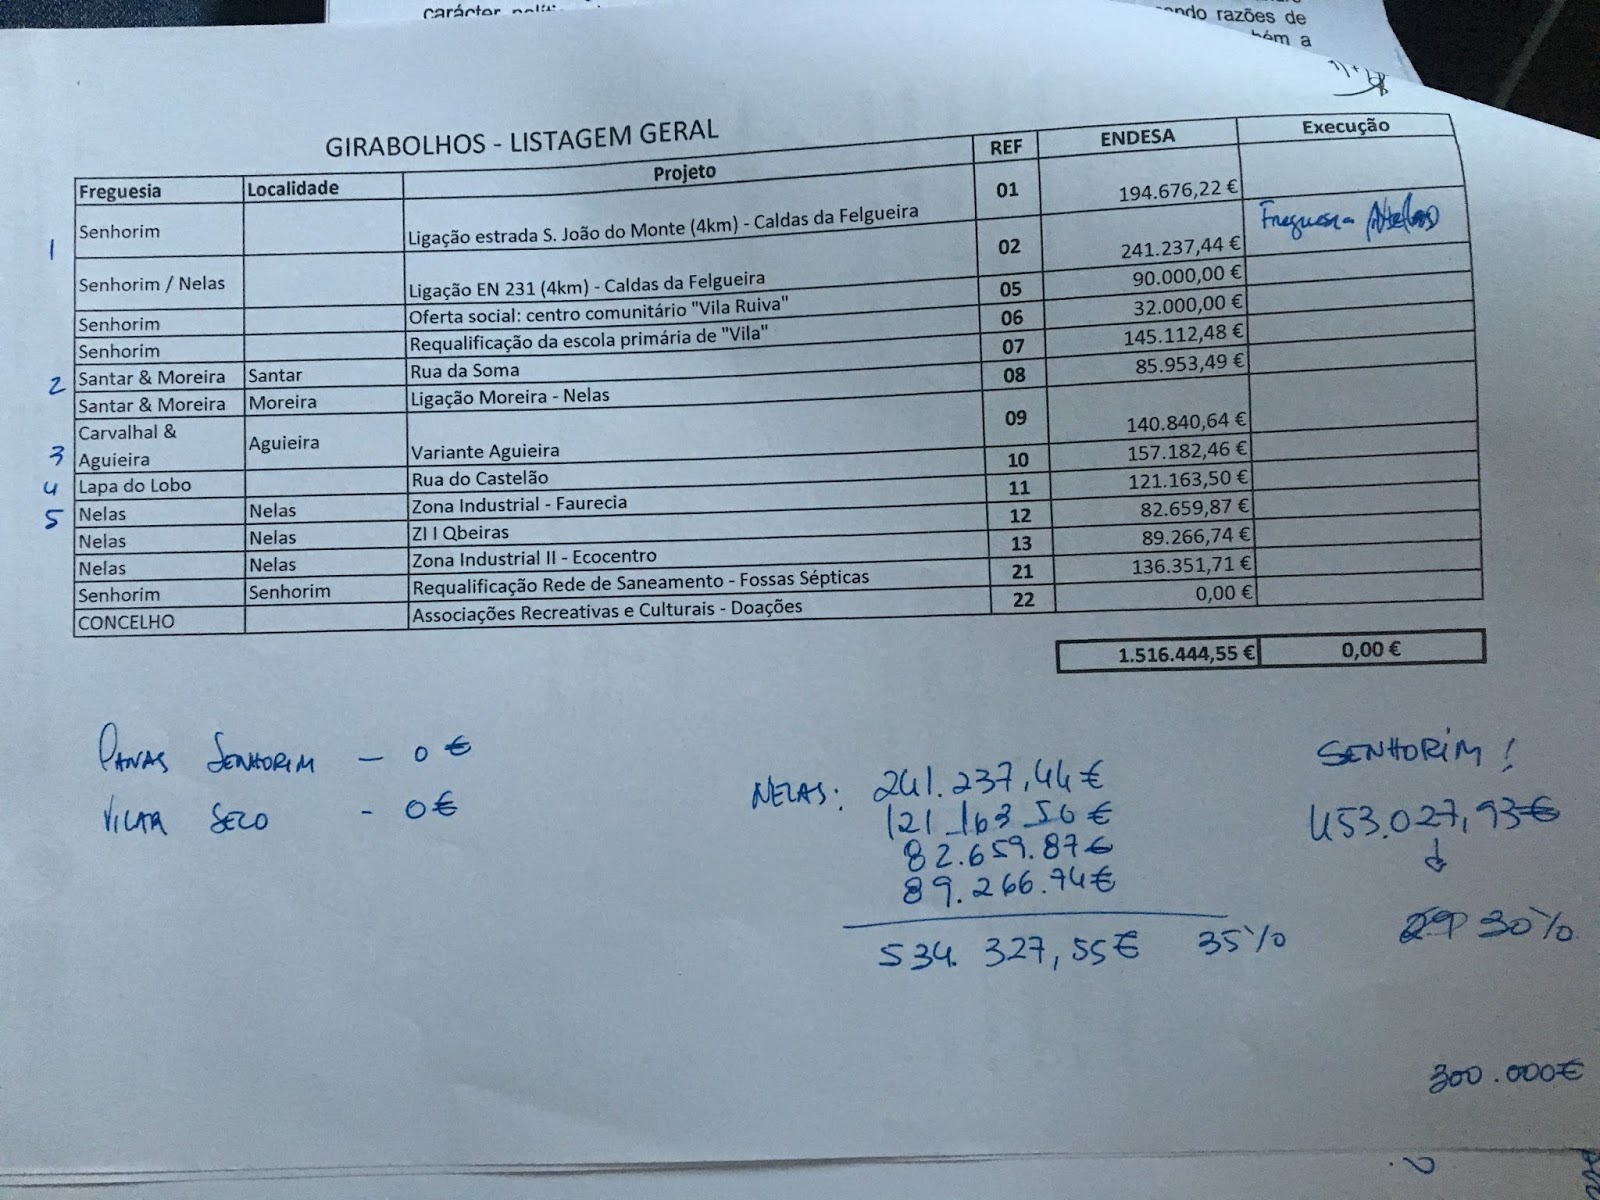 carácter
ndo razões de
bém a
GIRABOLHOS - LISTAGEM GERAL
Freguesia Localidade Projeto REF ENDESA Execução
1 Senhorim Ligação estrada S. João do Monte (4km) - Caldas da Felgueira 01 194.676,22 €
Senhorim / Nelas Ligação EN 231 (4km) - Caldas da Felgueira 02 241.237,44 €
Senhorim Oferta social: centro comunitário "Vila Ruiva" 05 90.000,00 €
Senhorim Requalificação da escola primária de "Vila" 06 32.000,00 €
2 Santar & Moreira Santar Rua da Soma 07 145.112,48 €
Santar & Moreira Moreira Ligação Moreira - Nelas 08 85.953,49 €
3 Carvalhal & Aguieira Aguieira Variante Aguieira 09 140.840,64 €
4 Lapa do Lobo Rua do Castelão 10 157.182,46 €
5 Nelas Nelas Zona Industrial - Faurecia 11 121.163,50 €
Nelas Nelas ZI I Qbeiras 12 82.659,87 €
Nelas Nelas Zona Industrial II - Ecocentro 13 89.266,74 €
Senhorim Senhorim Requalificação Rede de Saneamento - Fossas Sépticas 21 136.351,71 €
CONCELHO Associações Recreativas e Culturais - Doações 22 0,00 €
1.516.444,55 € 0,00 €
SENHORIM - 0 €
VILAR SECO - 0€
NELAS: 241.237,44€
121.163,50€
82.659.87€
89.266.74€
534.327,55€ 35%
SENHORIM!
453.027,93€
30%
300.000€